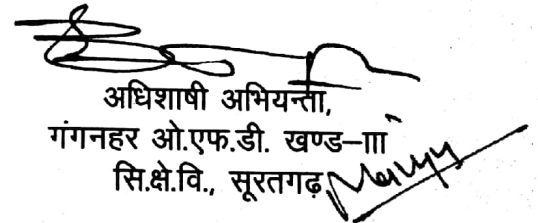 अधिशाषी अभियन्ता,
गंगनहर ओ.एफ.डी. खण्ड–III
सि.क्षे.वि., सूरतगढ़